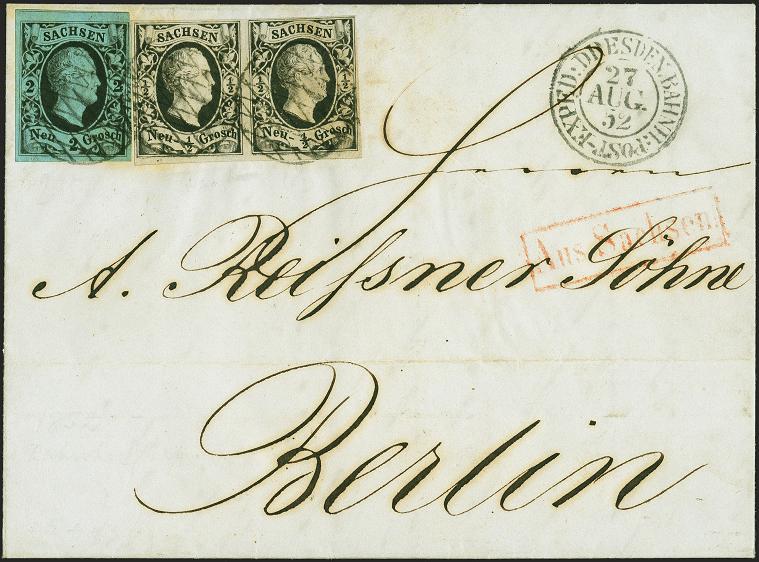 SACHSEN
2 2
Neu- 2 Grosch
SACHSEN
½ ½
Neu- ½ Grosch
SACHSEN
½ ½
Neu- ½ Grosch
POST-EXPED: DRESDEN BAHNH:
27
AUG.
52
Herren
Aus Sachsen
A. Reiſsner Söhne
Berlin